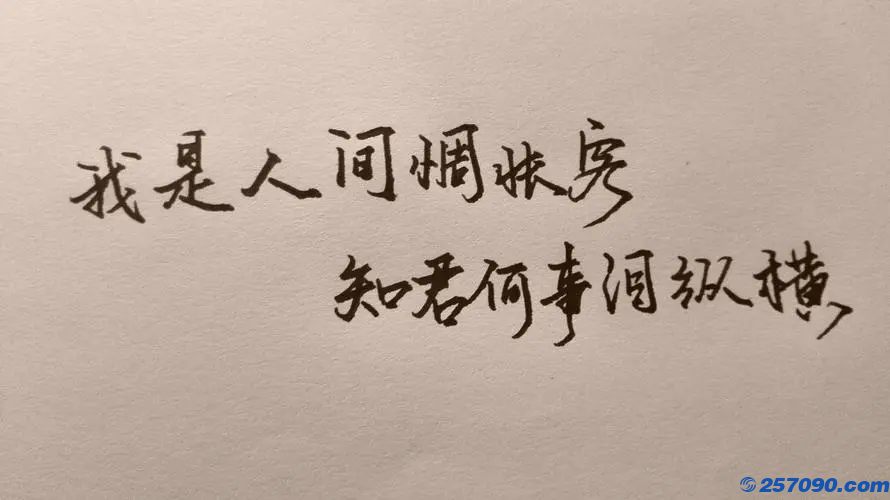 我是人间惆怅客
知君何事泪纵横
257090.com